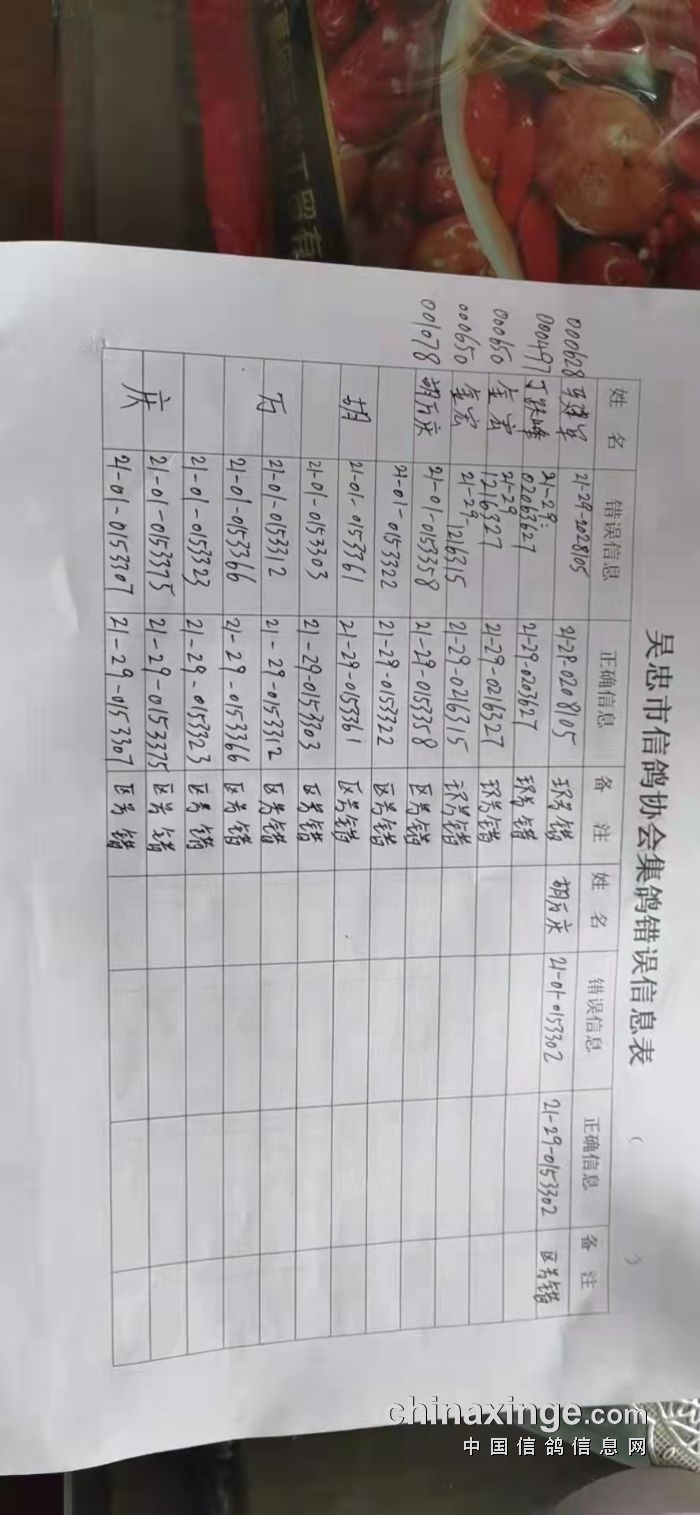 吴忠市信鸽协会集鸽错误信息表 ( )
姓名 错误信息 正确信息 备注 姓名 错误信息 正确信息 备注
000628 21-29-2028105 21-29-0208105 环号错 胡万庆 21-01-0153302 21-29-0153302 区号错
000497 丁跃峰 21-29-02063627 21-29-0203627 环号错
000650 金宏 21-29-1216327 21-29-0216327 环号错
000650 金宏 21-29-1216315 21-29-0216315 环号错
001078 胡万庆 21-01-0153358 21-29-0153358 区号错
21-01-0153322 21-29-0153322 区号错
胡 21-01-0153361 21-29-0153361 区号错
21-01-0153303 21-29-0153303 区号错
万 21-01-0153312 21-29-0153312 区号错
21-01-0153366 21-29-0153366 区号错
21-01-0153323 21-29-0153323 区号错
庆 21-01-0153375 21-29-0153375 区号错
21-01-0153307 21-29-0153307 区号错
chinaxinge.com
中国信鸽信息网